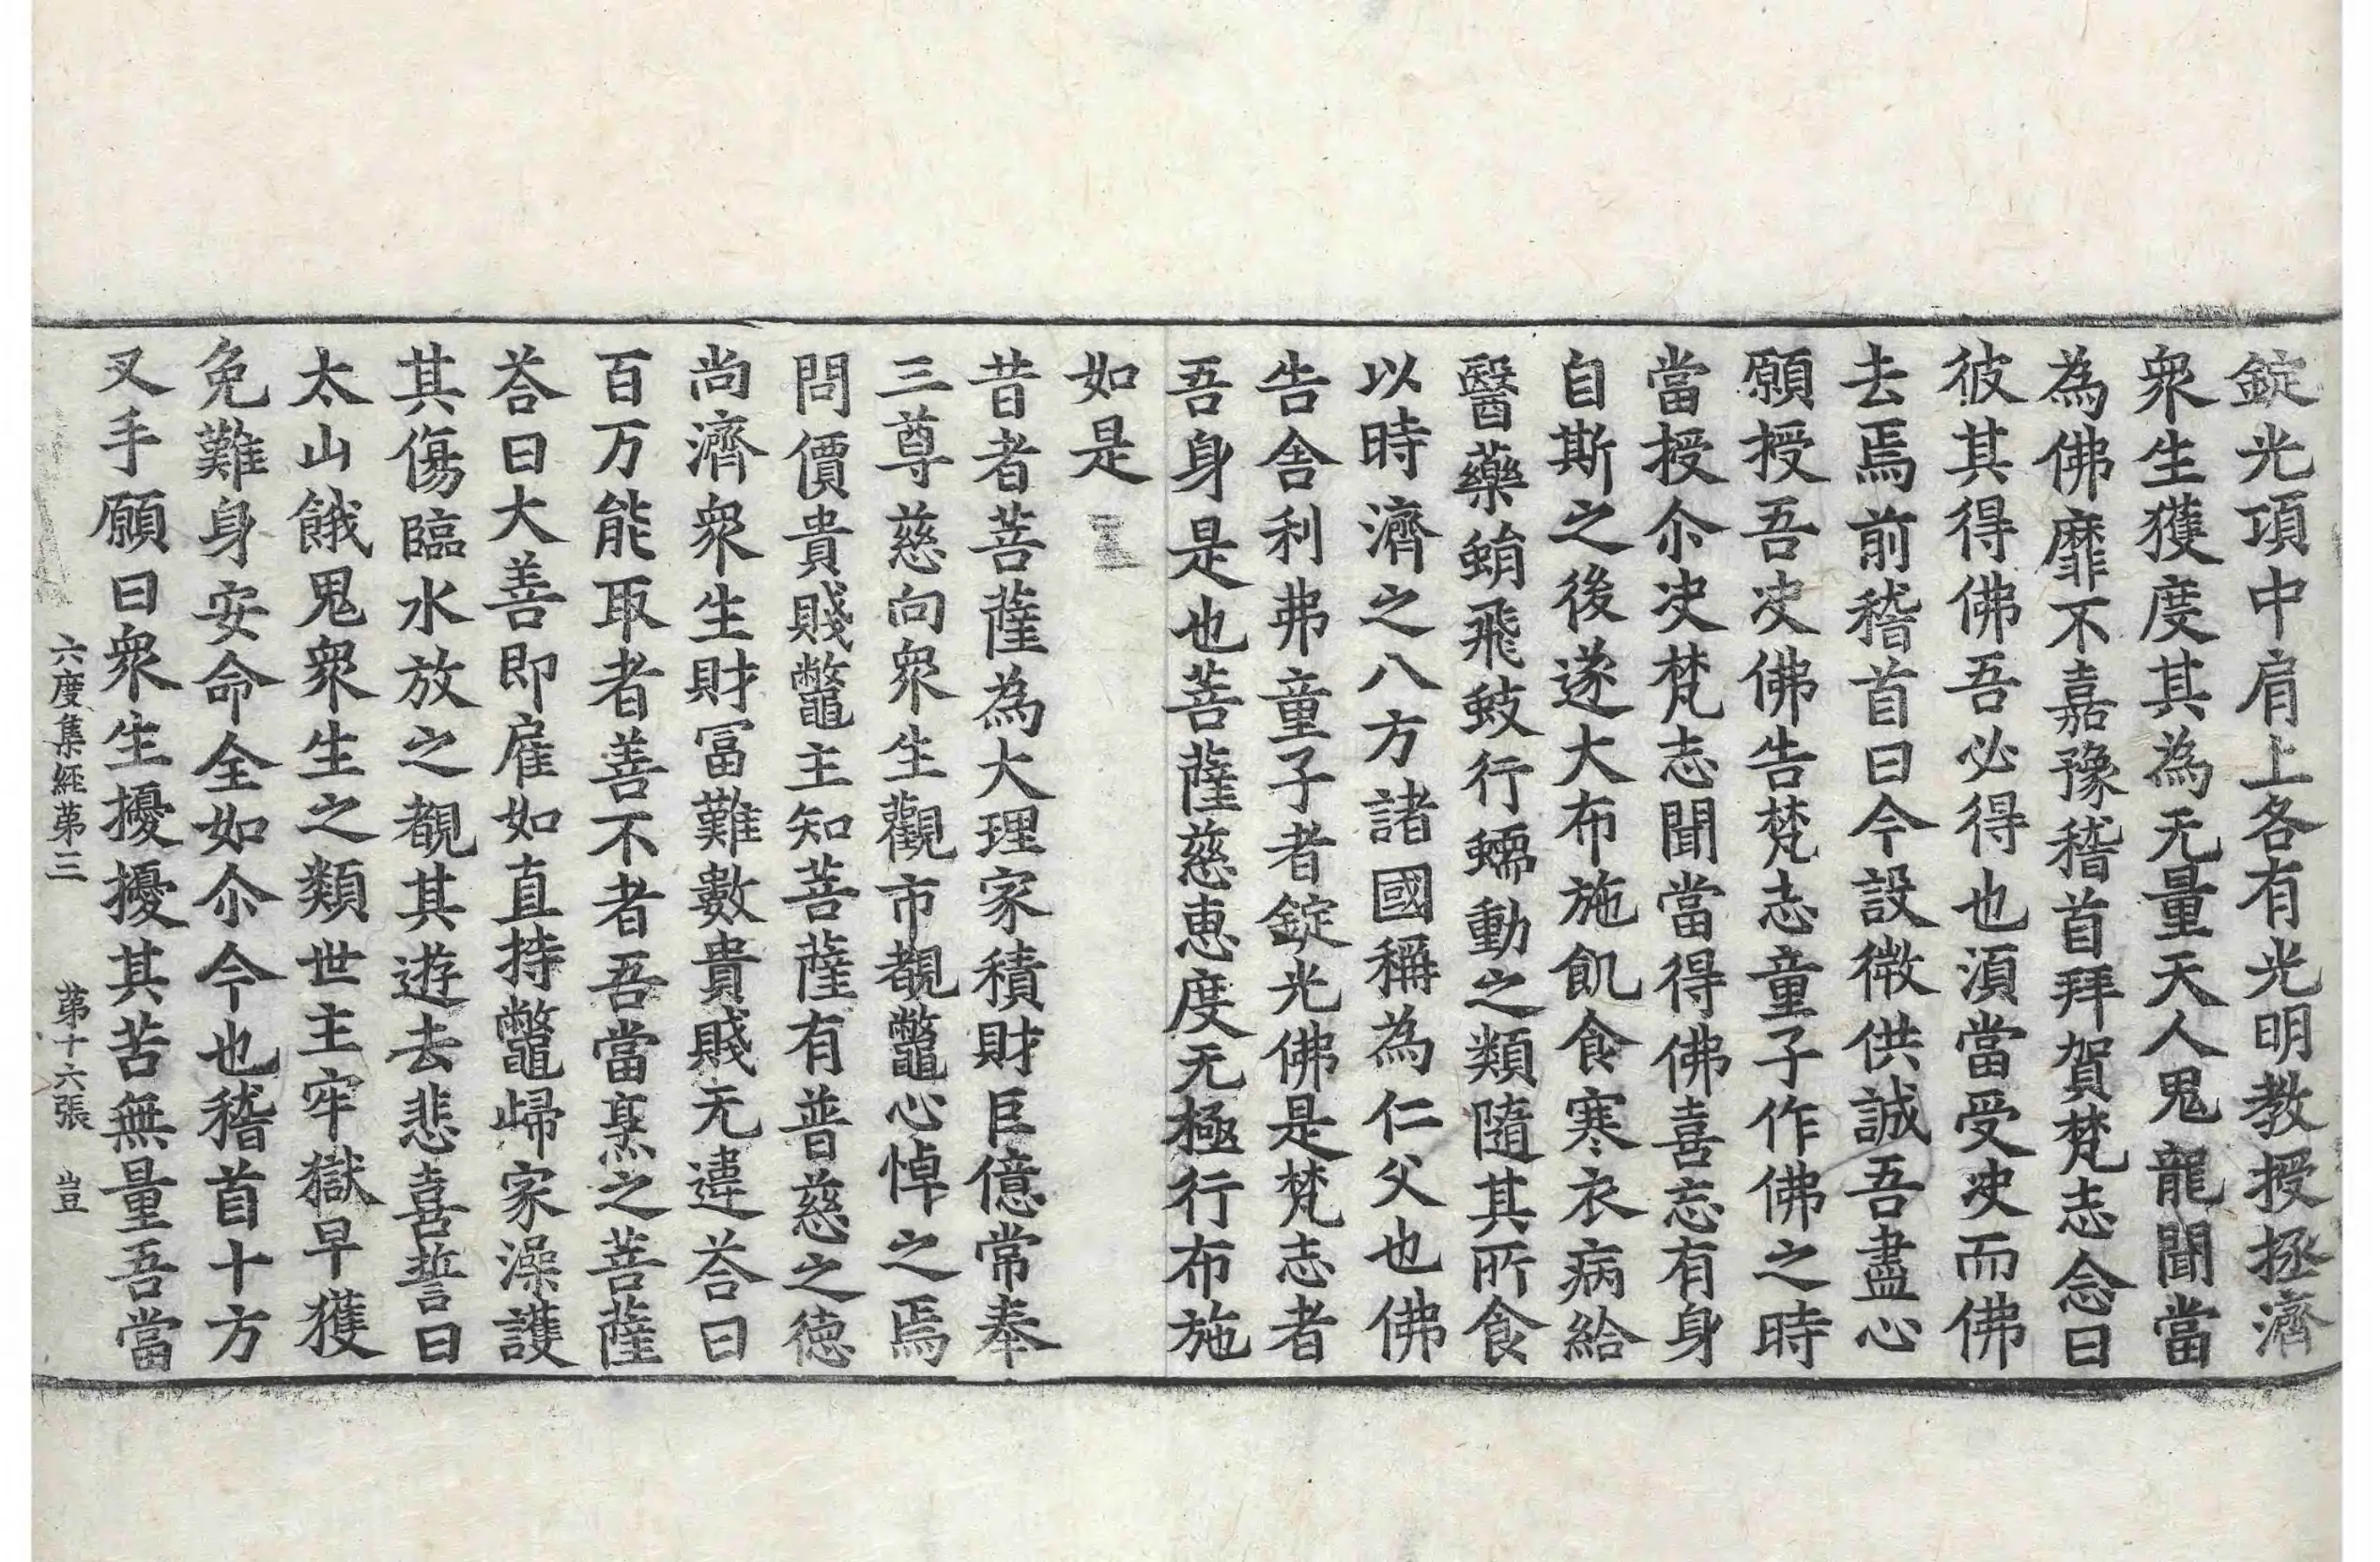 錠光項中肩上各有光明教授拯濟
衆生獲度其為无量天人鬼龍聞當
為佛靡不嘉豫稽首拜賀梵志念曰
彼其得佛吾必得也湏當受决而佛
去焉前稽首曰今設微供誠吾盡心
願授吾决佛告梵志童子作佛之時
當授尒决梵志聞當得佛喜忘有身
自斯之後遂大布施飢食寒衣病給
醫藥蜎飛蚑行蠕動之類隨其所食
以時濟之八方諸國稱為仁父也佛
告舎利弗童子者錠光佛是梵志者
吾身是也菩薩慈惠度无極行布施
如是
昔者菩薩為大理家積財巨億常奉
三尊慈向衆生觀市覩鼈心悼之焉
問價貴賤鼈主知菩薩有普慈之德
尚濟衆生財冨難數貴賤无違荅曰
百万能取者善不者吾當烹之菩薩
荅曰大善即雇如直持鼈歸家澡護
其傷臨水放之覩其遊去悲喜誓曰
太山餓鬼衆生之類世主牢獄早獲
免難身安命全如尒今也稽首十方
叉手願曰衆生擾擾其苦無量吾當
六度集經苐三 苐十六張 豈